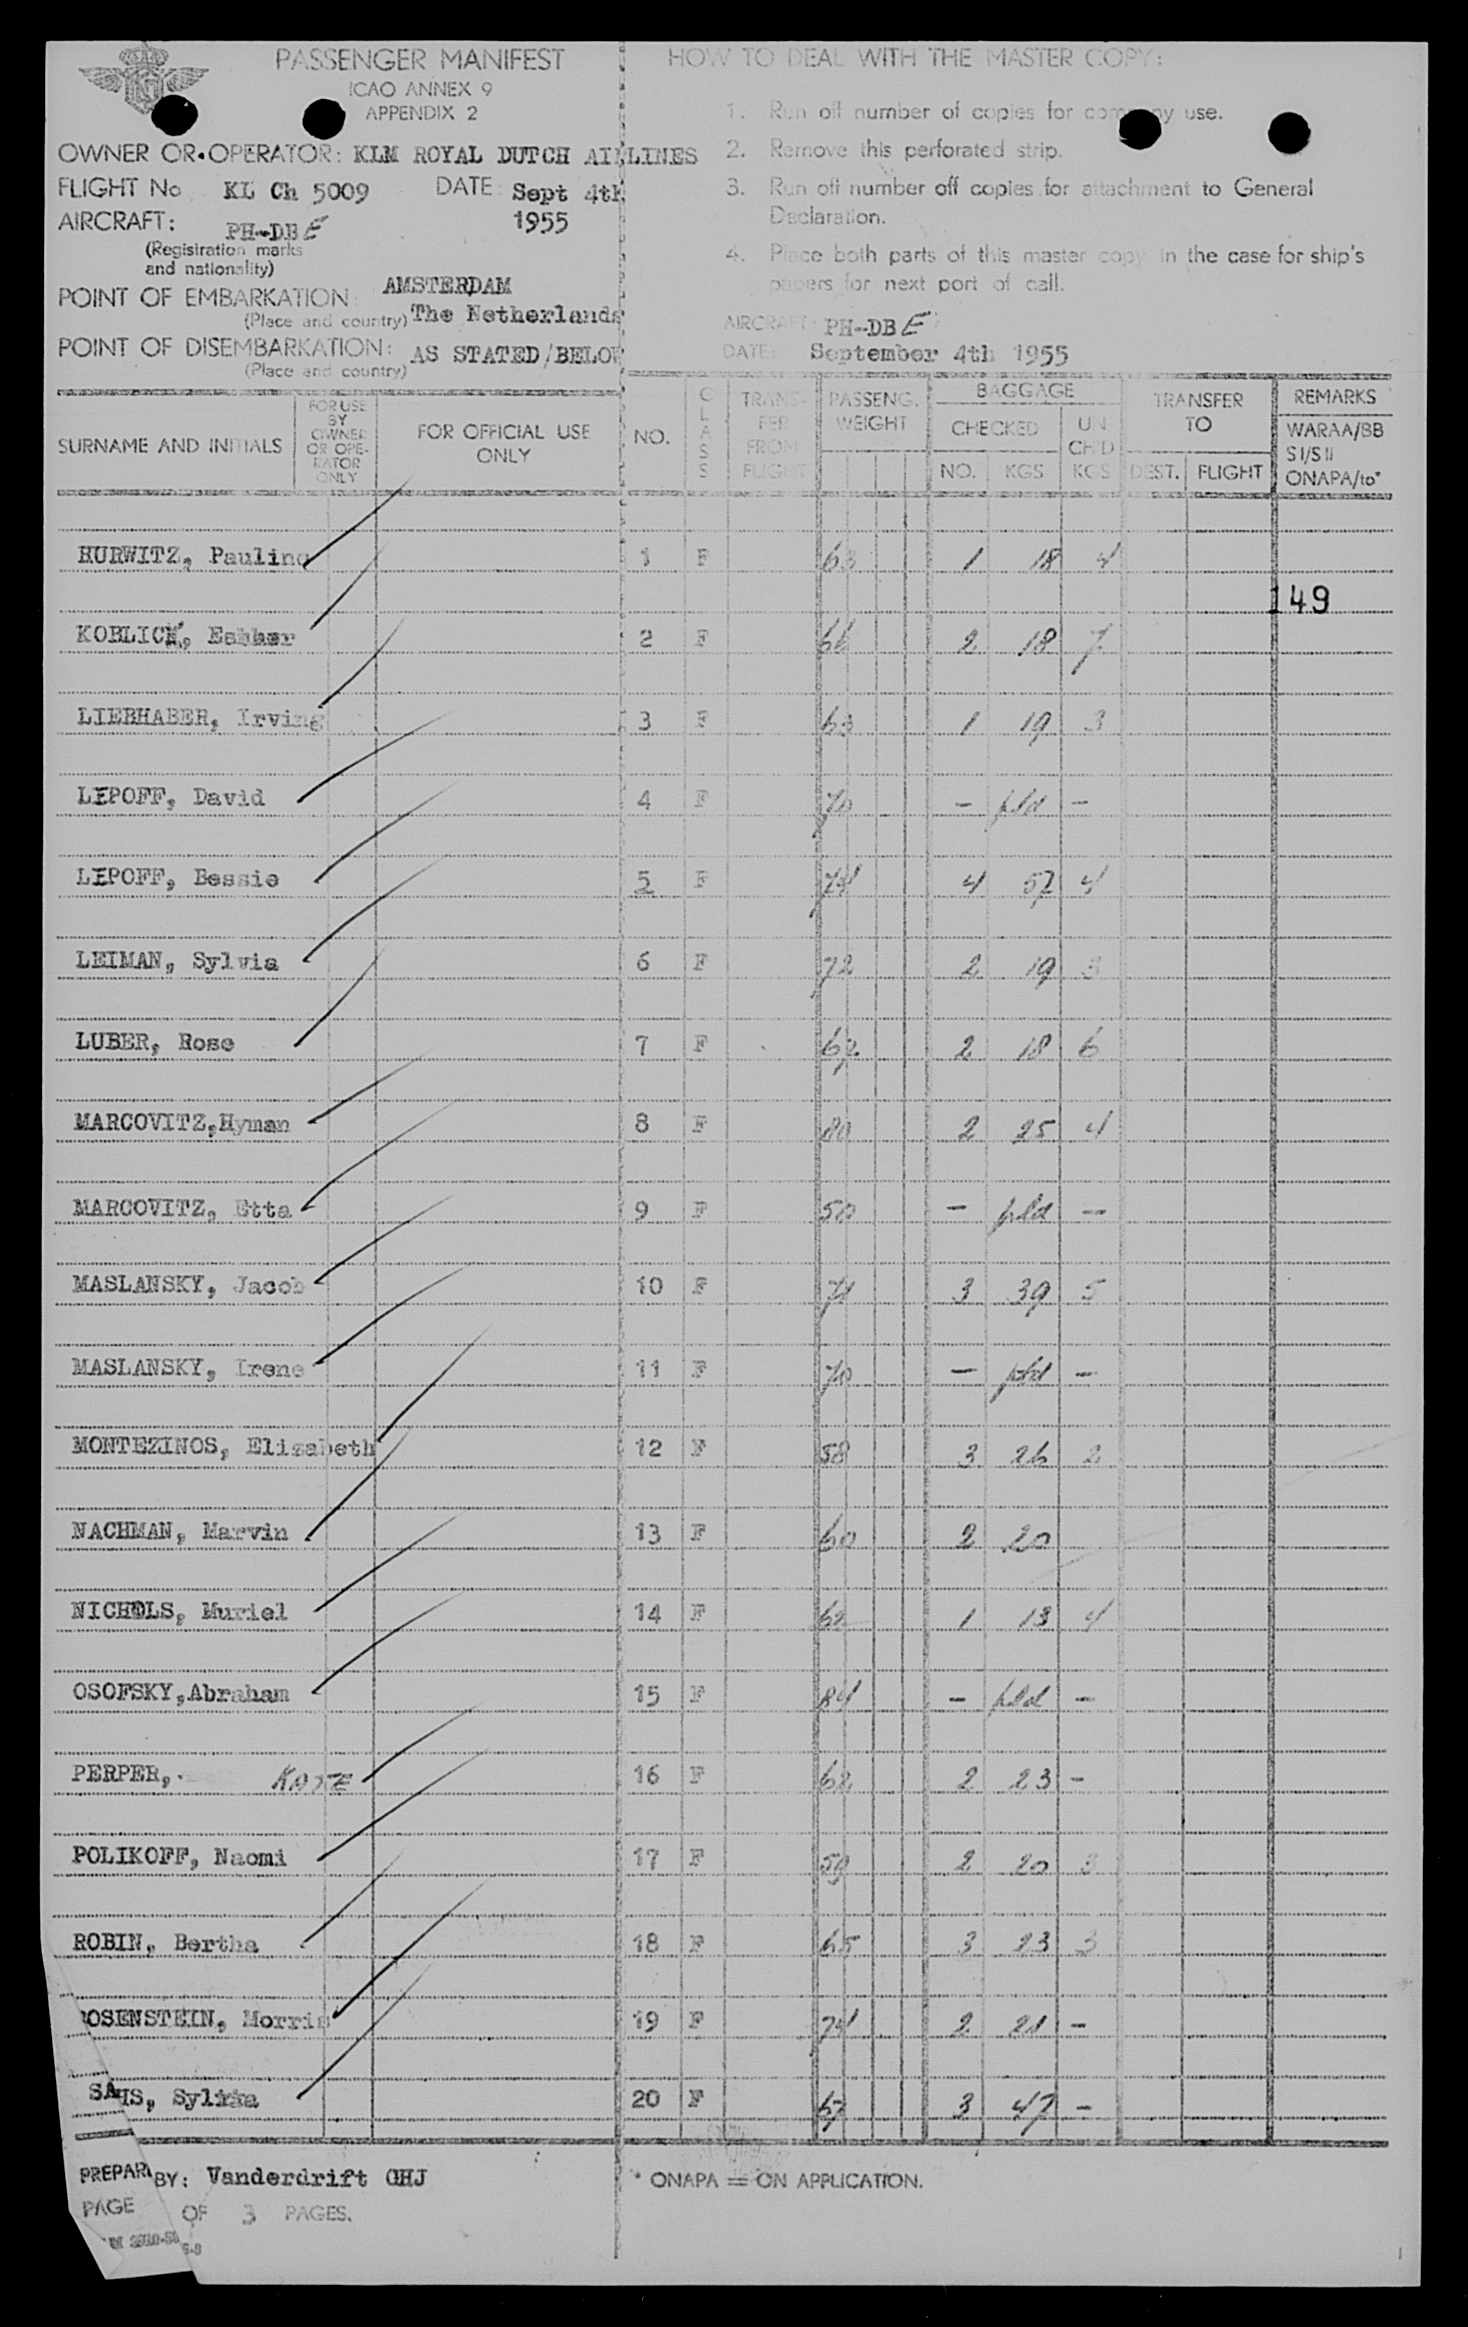 PASSENGER MANIFEST
ICAO ANNEX 9
APPENDIX 2
OWNER OR OPERATOR: KLM ROYAL DUTCH AIRLINES
FLIGHT No KL Ch 5009 DATE: Sept 4th
1955
AIRCRAFT: PH-DBE
(Registration marks
and nationality)
POINT OF EMBARKATION: AMSTERDAM
(Place and country) The Netherlands
POINT OF DISEMBARKATION: AS STATED/BELOW
(Place and country)
HOW TO DEAL WITH THE MASTER COPY:
1. Run off number of copies for company use.
2. Remove this perforated strip.
3. Run off number off copies for attachment to General
Declaration.
4. Place both parts of this master copy in the case for ship's
papers for next port of call.
AIRCRAFT: PH-DBE
DATE: September 4th 1955
SURNAME AND INITIALS
FOR USE
BY
OWNER
OR OPE-
RATOR
ONLY
FOR OFFICIAL USE
ONLY
NO.
CLASS
TRANS-
FER
FROM
FLIGHT
PASSENG.
WEIGHT
BAGGAGE
CHECKED
NO. KGS
UN
CH'D
KGS
TRANSFER
TO
DEST. FLIGHT
REMARKS
WARAA/BB
SI/SII
ONAPA/to*
HURWITZ, Pauline 1 F 63 1 18 4
149
KOBLICK, Esther 2 F 66 2 18 7
LIEBHABER, Irving 3 F 63 1 19 3
LIPOFF, David 4 F 70 - pld -
LIPOFF, Bessie 5 F 74 4 57 4
LEIMAN, Sylvia 6 F 72 2 19 3
LUBER, Rose 7 F 62 2 18 6
MARCOVITZ,Hyman 8 F 80 2 25 4
MARCOVITZ, Etta 9 F 50 - pld -
MASLANSKY, Jacob 10 F 74 3 39 5
MASLANSKY, Irene 11 F 70 - pld -
MONTEZINOS, Elizabeth 12 F 58 3 26 2
NACHMAN, Marvin 13 F 60 2 20
NICHOLS, Muriel 14 F 62 1 13 4
OSOFSKY,Abraham 15 F 84 - pld -
PERPER, 16 F 62 2 23 -
POLIKOFF, Naomi 17 F 59 2 20 3
ROBIN, Bertha 18 F 65 3 23 3
ROSENSTEIN, Morris 19 F 74 2 21 -
20 F 67 3 47 -
PREPARED BY: Vanderdrift GHJ
PAGE OF 3 PAGES.
* ONAPA = ON APPLICATION.